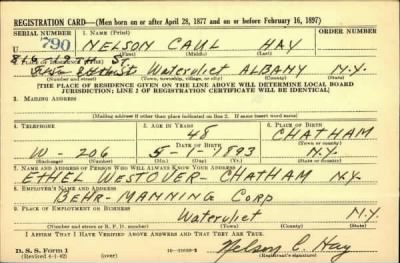 REGISTRATION CARD—(Men born on or after April 28, 1877 and on or before February 16, 1897)
SERIAL NUMBER 1. NAME (Print) ORDER NUMBER
U 790 NELSON CAUL HAY
ST. Watervliet ALBANY N.Y.
(Town, township, village, or city) (County) (State)
[THE PLACE OF RESIDENCE GIVEN ON THE LINE ABOVE WILL DETERMINE LOCAL BOARD
JURISDICTION; LINE 2 OF REGISTRATION CERTIFICATE WILL BE IDENTICAL]
3. MAILING ADDRESS
[Mailing address if other than place indicated on line 2. If same insert word same]
4. TELEPHONE 5. AGE IN YEARS 6. PLACE OF BIRTH
48 CHATHAM
DATE OF BIRTH (Town or county)
W-206 5-1-1893 N.Y.
(Exchange) (Number) (Mo.) (Day) (Yr.) (State or country)
7. NAME AND ADDRESS OF PERSON WHO WILL ALWAYS KNOW YOUR ADDRESS
ETHEL WESTOVER-CHATHAM N.Y.
8. EMPLOYER'S NAME AND ADDRESS
BEHR-MANNING CORP
9. PLACE OF EMPLOYMENT OR BUSINESS
Watervliet N.Y.
(Number and street or R. F. D. number) (Town) (County) (State)
I AFFIRM THAT I HAVE VERIFIED ABOVE ANSWERS AND THAT THEY ARE TRUE.
D. S. S. Form 1
(Revised 4-1-42) (over) Nelson C. Hay
(Registrant's signature)